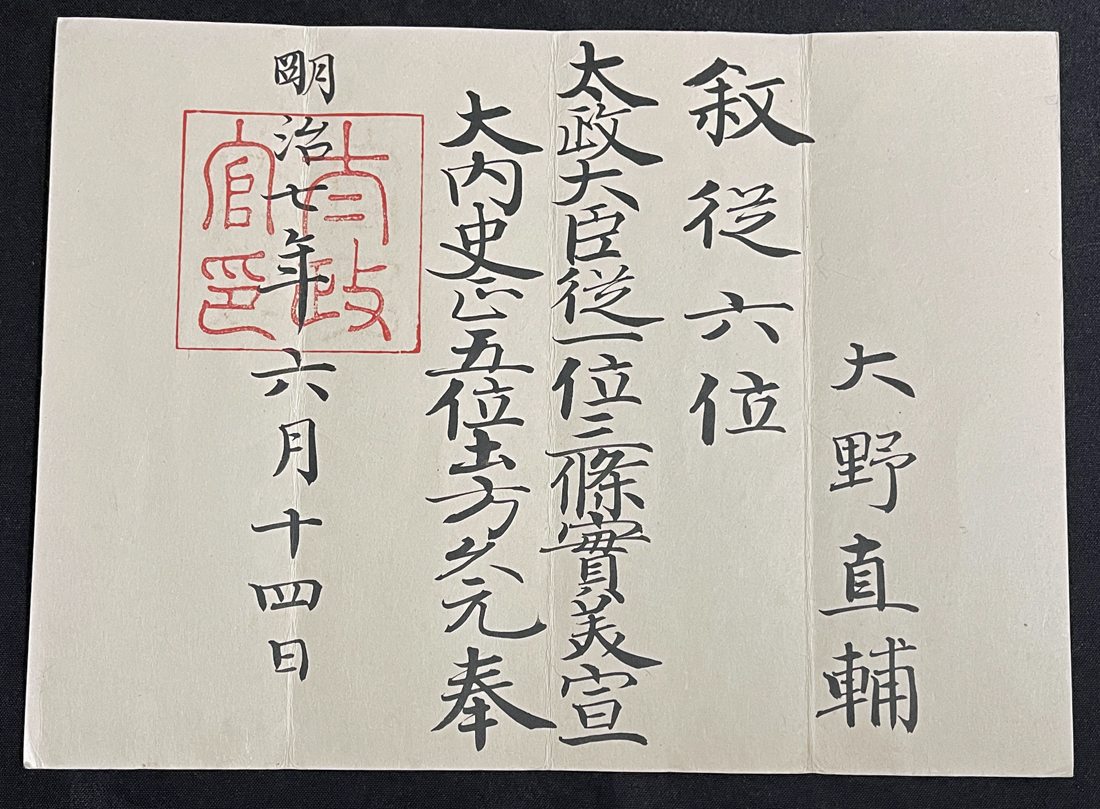 大野直輔
敘從六位
太政大臣從一位三條實美宣
大内史正五位土方久元奉
明治七年六月十四日
太政官印